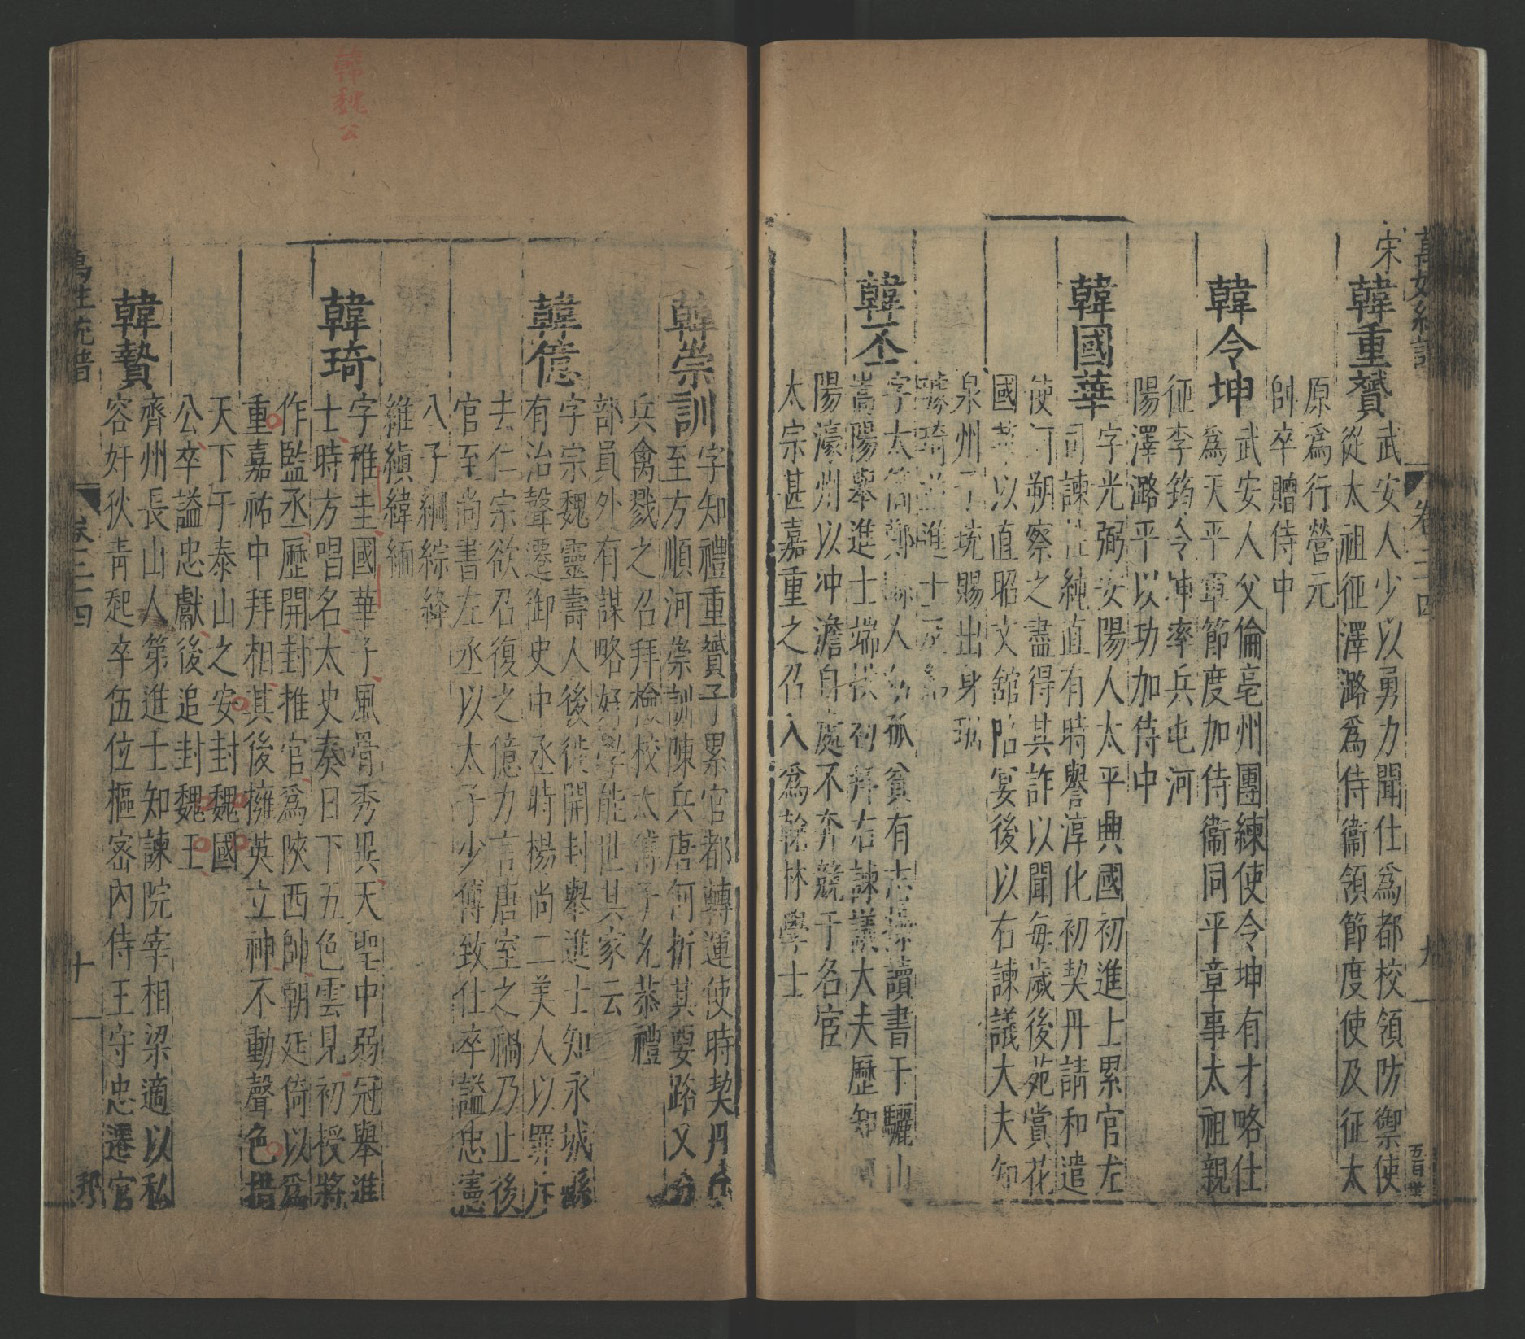 宋
韓重贇武安人少以勇力聞仕爲都校領防禦使
從太祖征澤潞爲侍衞領節度使及征太
原爲行營元
帥卒贈侍中
韓令坤武安人父倫亳州團練使令坤有才略仕
爲天平軍節度加侍衞同平章事太祖親
征李筠令坤率兵屯河
陽澤潞平以功加侍中
韓國華字光弼安陽人太平興國初進士累官左
司諫性純直有時譽淳化初契丹請和遣
使河朔察之盡得其詐以聞每歲後苑賞花
國華以直昭文舘陪宴後以右諫議大夫知
泉州子琉賜出身琚
璩琦並進士
韓丕字太簡鄭人幼孤貧有志操讀書于驪山
嵩陽舉進士端拱初拜右諫議大夫歷知河
陽濠州以冲澹自處不奔競于名宦
太宗甚嘉重之召入爲翰林學士
萬姓統譜
卷二十四
九
韓魏公
韓崇訓字知禮重贇子累官都轉運使時契丹兵
至方順河崇訓陳兵唐河折其要路又分
兵禽戮之召拜檢校太傅子允恭禮
部員外有謀略好學能世其家云
韓億字宗魏靈壽人後徙開封舉進士知永城縣
有治聲遷御史中丞時楊尚二美人以罪斥
去仁宗欲召復之億力言唐室之禍乃止後
官至尚書左丞以太子少傅致仕卒謚忠憲
八子綱綜絳
維縝緯緬
韓琦字稚圭國華子風骨秀異天聖中弱冠舉進
士時方唱名太史奏日下五色雲見初授將
作監丞歷開封推官爲陝西帥朝廷倚以爲
重嘉祐中拜相其後擁英立神不動聲色措
天下于泰山之安封魏國
公卒謚忠獻後追封魏王
韓贄齊州長山人第進士知諫院宰相梁適以私
容奸狄青起卒伍位樞密內侍王守忠遷官
萬姓統譜
卷二十四
十